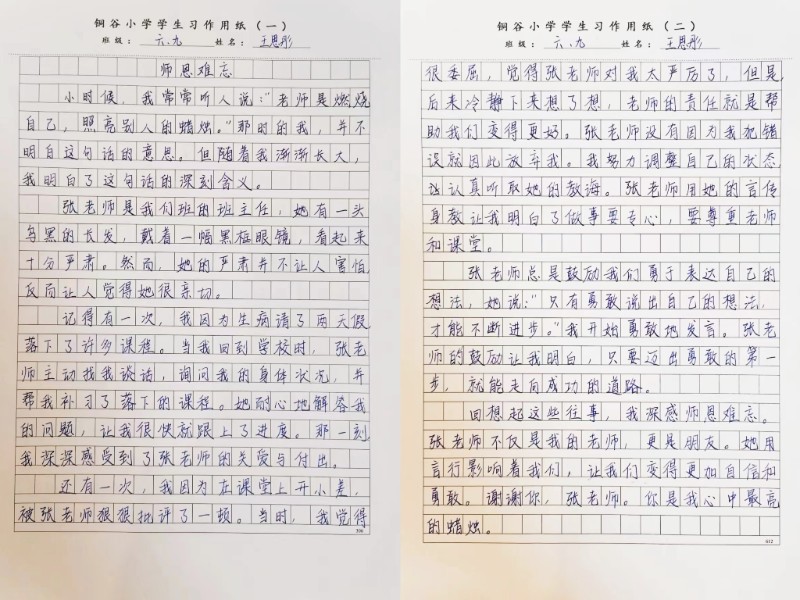 铜谷小学学生习作用纸（一）
班级：六、九 姓名：王思彤
师恩难忘
小时候，我常常听人说："老师是燃烧
自己，照亮别人的蜡烛。"那时的我，并不
明白这句话的意思。但随着我渐渐长大，
我明白了这句话的深刻含义。
张老师是我们班的班主任，她有一头
乌黑的长发，戴着一幅黑框眼镜，看起来
十分严肃。然而，她的严肃并不让人害怕，
反而让人觉得她很亲切。
记得有一次，我因为生病请了两天假，
落下了许多课程。当我回到学校时，张老
师主动找我谈话，询问我的身体状况，并
帮我补习了落下的课程。她耐心地解答我
的问题，让我很快就跟上了进度。那一刻，
我深深感受到了张老师的关爱与付出。
还有一次，我因为在课堂上开小差，
被张老师狠狠批评了一顿。当时，我觉得
396
铜谷小学学生习作用纸（二）
班级：六、九 姓名：王思彤
很委屈，觉得张老师对我太严厉了，但是，
后来冷静下来想了想，老师的责任就是帮
助我们变得更好。张老师没有因为我犯错
误就因此放弃我。我努力调整自己的状态，
也认真听取她的教诲。张老师用她的言传
身教让我明白了做事要专心，要尊重老师
和课堂。
张老师总是鼓励我们勇于表达自己的
想法，她说："只有勇敢说出自己的想法，
才能不断进步。"我开始勇敢地发言。张老
师的鼓励让我明白，只要迈出勇敢的第一
步，就能走向成功的道路。
回想起这些往事，我深感师恩难忘。
张老师不仅是我的老师，更是朋友。她用
言行影响着我们，让我们变得更加自信和
勇敢。谢谢你，张老师。你是我心中最亮
的蜡烛。
612